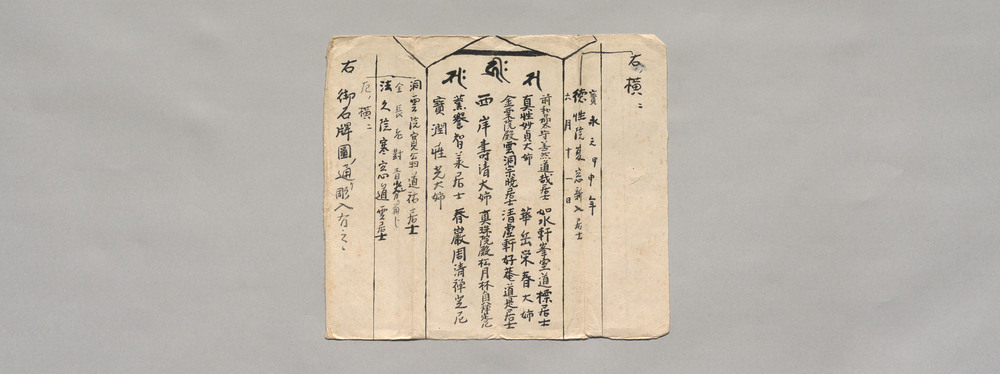 右、横ニ
寳永元甲申年
徳性院夏窓新入居士
六月十一日
善然道哉居士 如水軒峯雲道標居士
真性妙貞大姉 華岳栄春大姉
金粟院殿雲洞宗暁居士 清虚軒好菴道是居士
西岸寿清大姉 真珠院殿松月林貞禅定尼
薫誉智美居士 春巌周清禅定尼
寳潤性光大姉
洞雲院實翁道祐居士
法久院寒窓道雲居士
横ニ
右御石牌圖、通彫入方